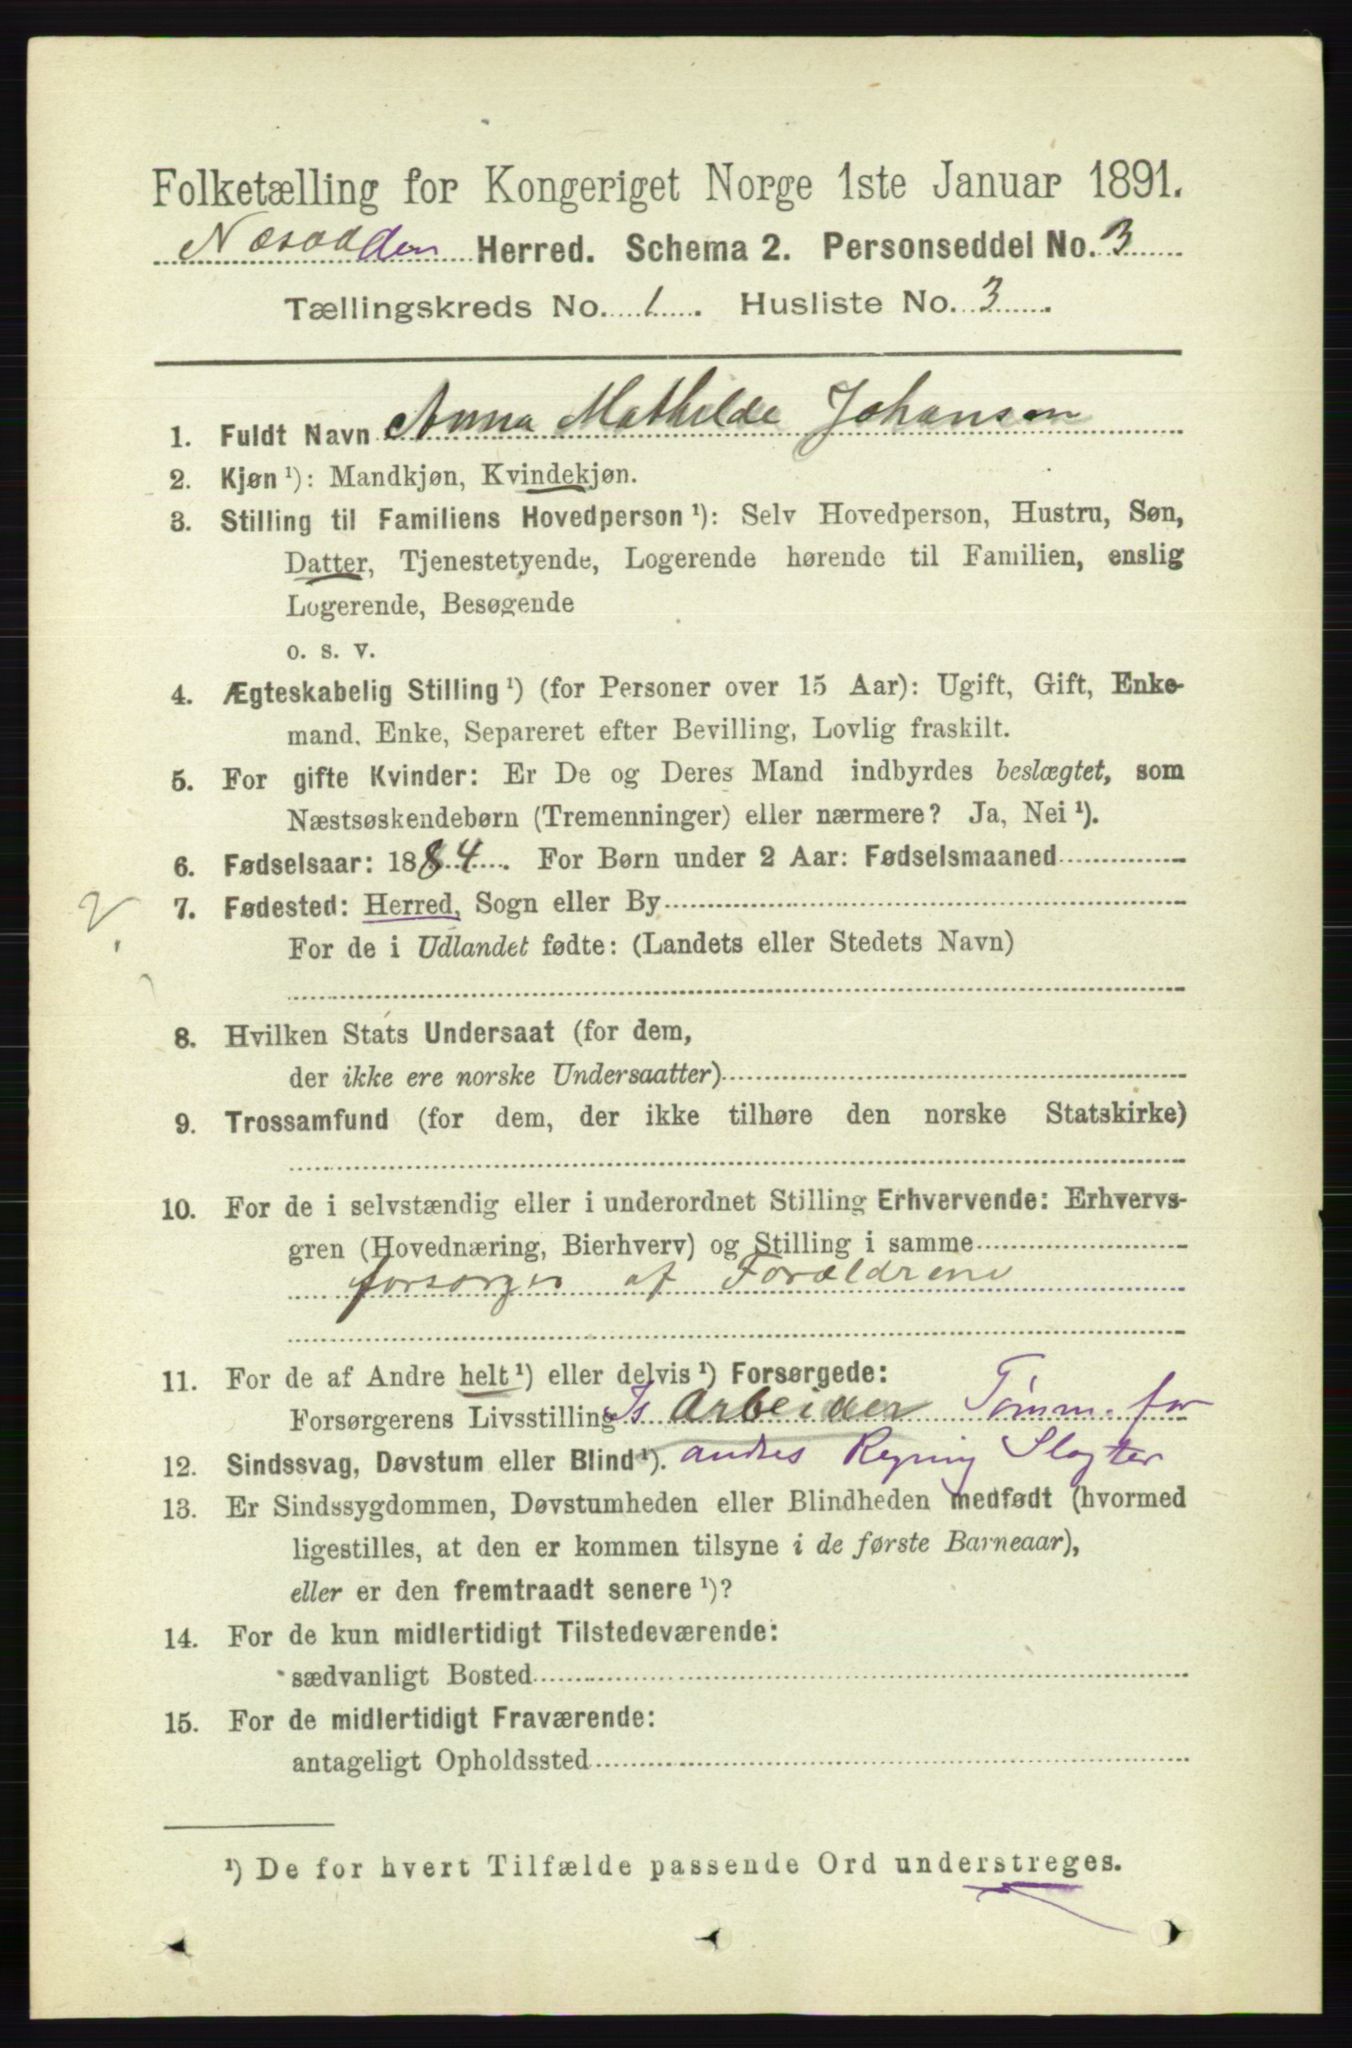 Folketælling for Kongeriget Norge 1ste Januar 1891.
Næsodden Herred. Schema 2. Personseddel No. 3
Tællingskreds No. 1. Husliste No. 3.
1. Fuldt Navn Anna Mathilde Johansen
2. Kjøn ¹): Mandkjøn, Kvindekjøn.
3. Stilling til Familiens Hovedperson ¹): Selv Hovedperson, Hustru, Søn,
Datter, Tjenestetyende, Logerende hørende til Familien, enslig
Logerende, Besøgende
o. s. v.
4. Ægteskabelig Stilling ¹) (for Personer over 15 Aar): Ugift, Gift, Enke-
mand, Enke, Separeret efter Bevilling, Lovlig fraskilt.
5. For gifte Kvinder: Er De og Deres Mand indbyrdes beslægtet, som
Næstsøskendebørn (Tremenninger) eller nærmere? Ja, Nei ¹).
6. Fødselsaar: 1884. For Børn under 2 Aar: Fødselsmaaned
7. Fødested: Herred, Sogn eller By
For de i Udlandet fødte: (Landets eller Stedets Navn)
8. Hvilken Stats Undersaat (for dem,
der ikke ere norske Undersaatter)
9. Trossamfund (for dem, der ikke tilhøre den norske Statskirke)
10. For de i selvstændig eller i underordnet Stilling Erhvervende: Erhvervs-
gren (Hovednæring, Bierhverv) og Stilling i samme
forsørges af Forældrene
11. For de af Andre helt ¹) eller delvis ¹) Forsørgede:
Forsørgerens Livsstilling Is Arbeider Tømm. for
12. Sindssvag, Døvstum eller Blind ¹). andres Regning Slagter
13. Er Sindssygdommen, Døvstumheden eller Blindheden medfødt (hvormed
ligestilles, at den er kommen tilsyne i de første Barneaar),
eller er den fremtraadt senere ¹)?
14. For de kun midlertidigt Tilstedeværende:
sædvanligt Bosted
15. For de midlertidigt Fraværende:
antageligt Opholdssted
¹) De for hvert Tilfælde passende Ord understreges.